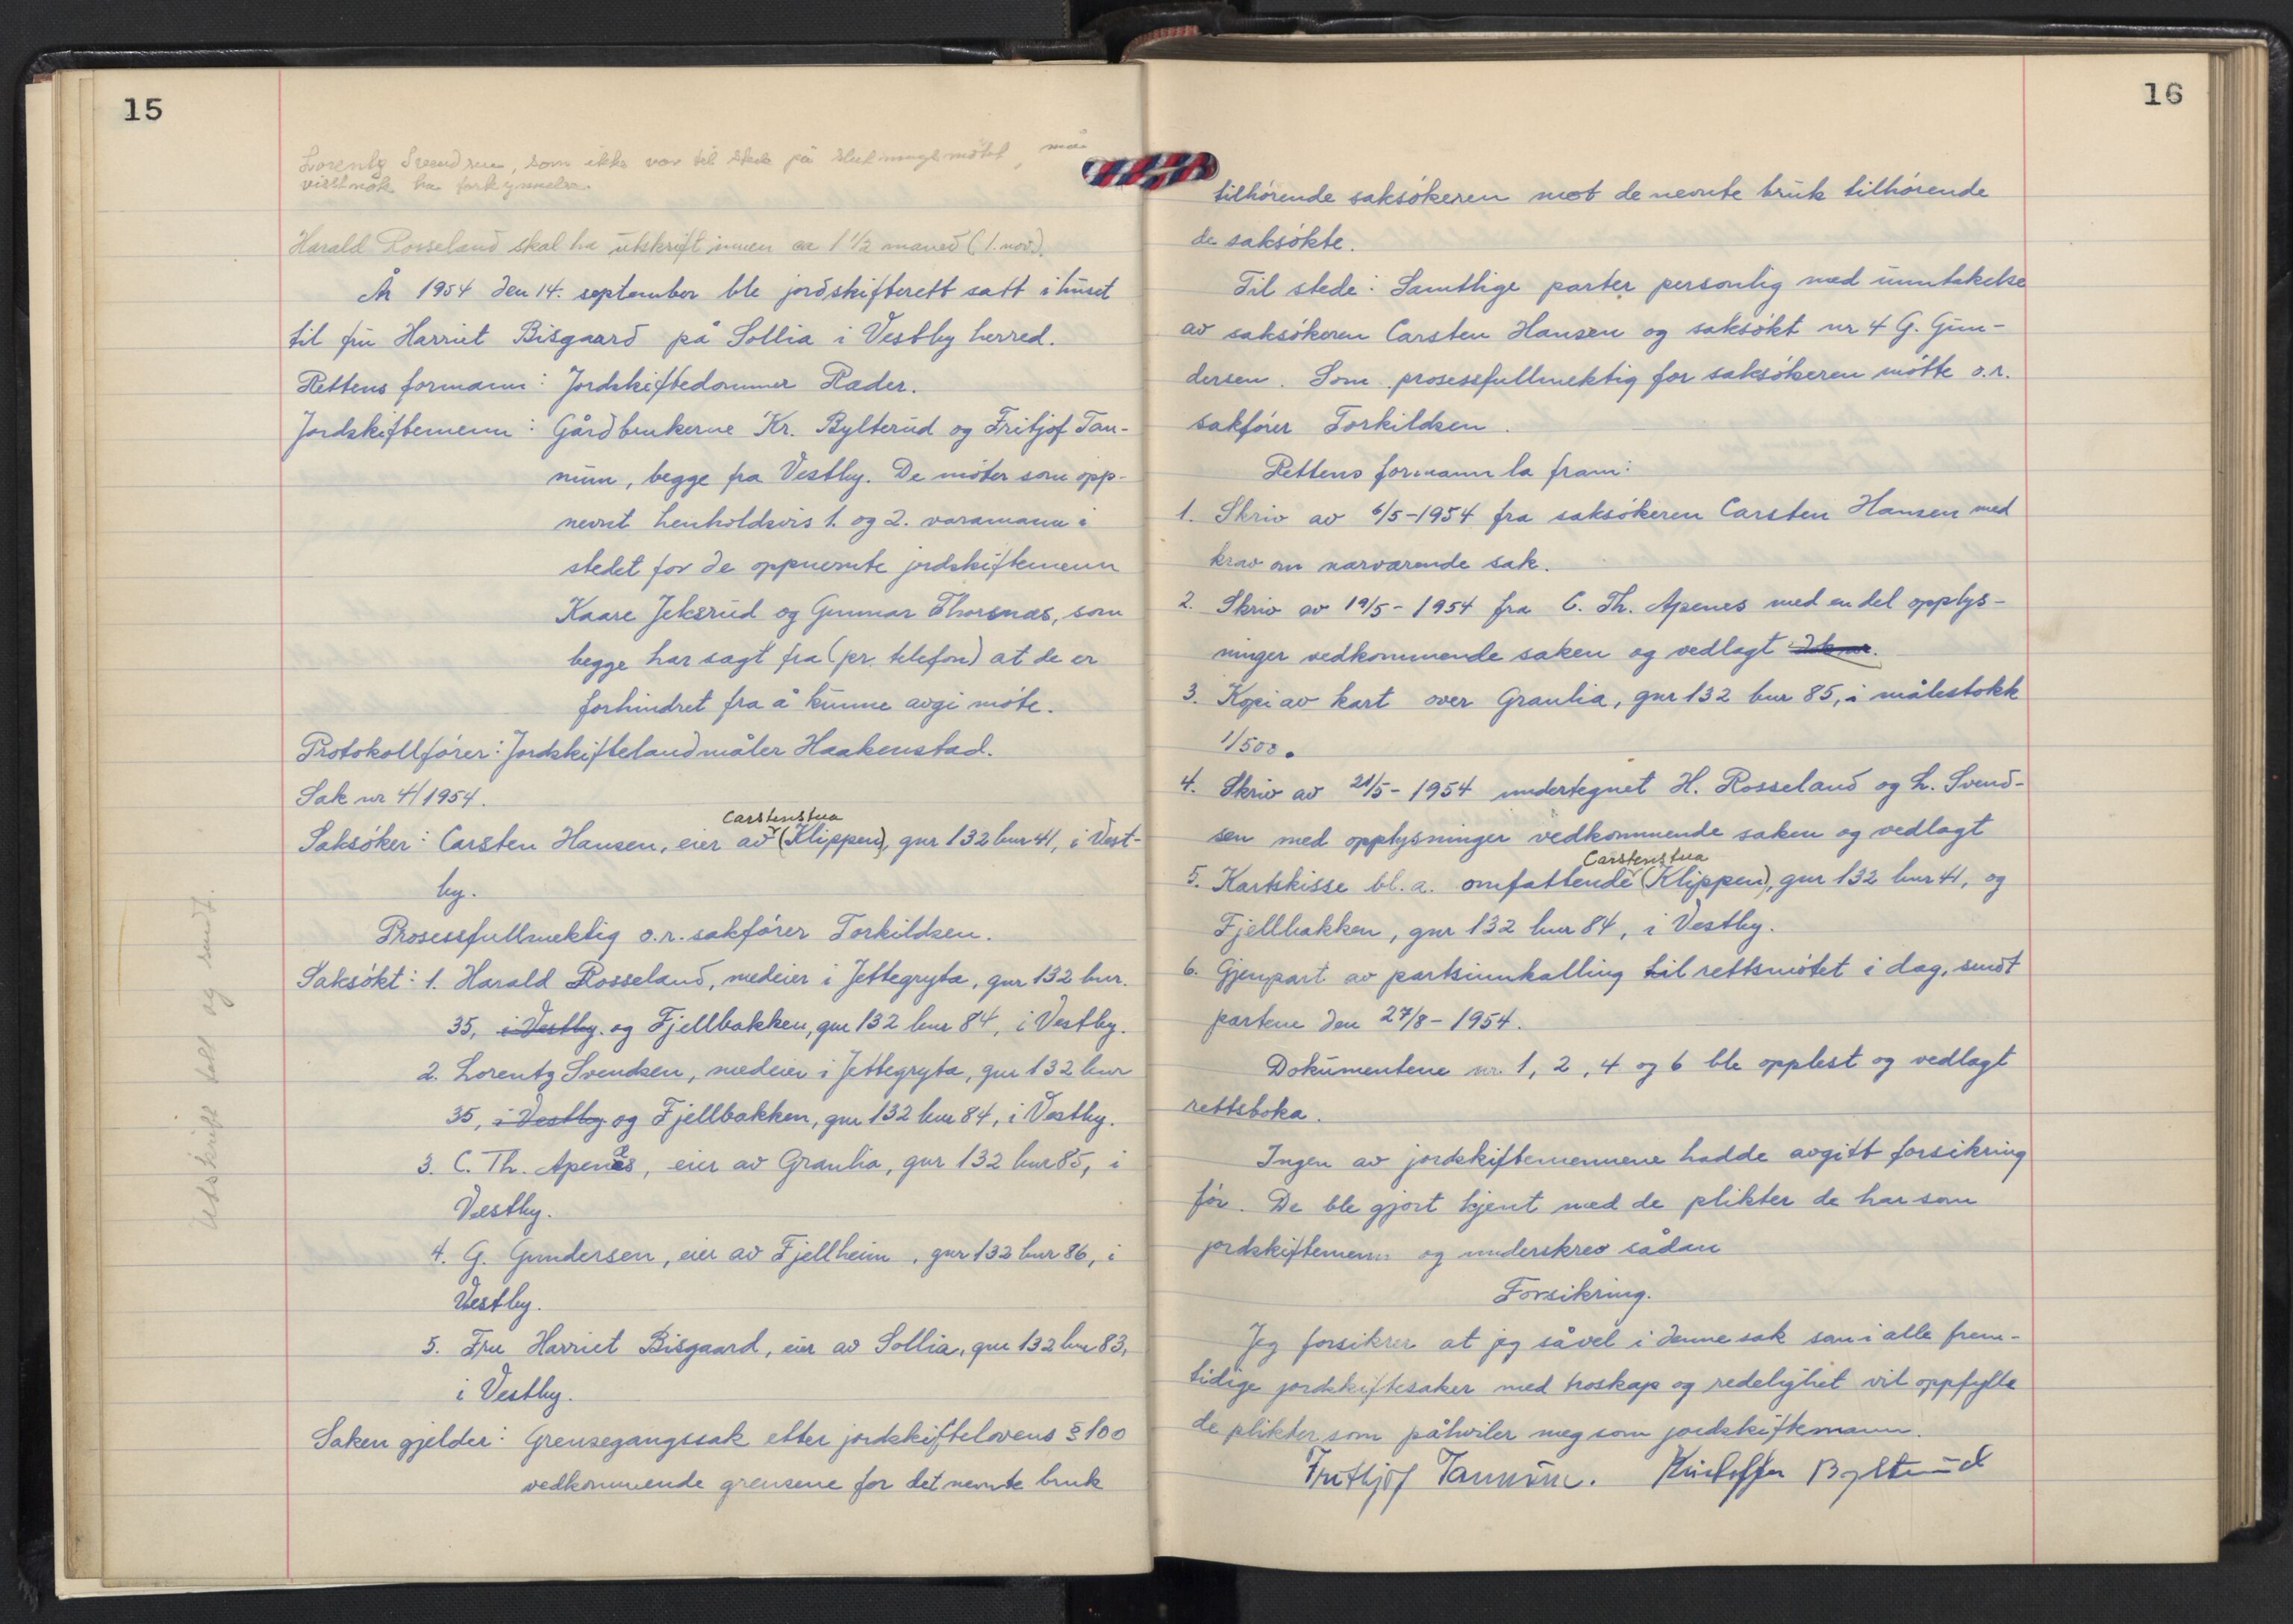 15
Lorentz Svendsen, som ikke var til stede på slutningsmötet, må
visstnok ha forkynnelse.
Harald Rosseland skal ha utskrift innen ca 1 1/2 måned (1. nov).
År 1954 den 14. september ble jordskifterett satt i huset
til fru Harriet Bisgaard på Sollia i Vestby herred.
Rettens formann: Jordskiftedommer Ræder.
Jordskiftemenn: Gårdbrukerne Kr. Bylterud og Fritjof Tan-
num, begge fra Vestby. De möter som opp-
nevnt henholdsvis 1. og 2. varamann i
stedet for de oppnevnte jordskiftemenn
Kaare Jeksrud og Gunnar Thorsnæs, som
begge har sagt fra (pr. telefon) at de er
forhindret fra å kunne avgi möte.
Protokollförer: Jordskiftelandmåler Haakenstad.
Sak nr 4/1954.
Carstenstua
Saksöker: Carsten Hansen, eier av (Klippen), gnr 132 bnr 41, i Vest-
by.
Prosessfullmektig o.r. sakförer Torkildsen.
Saksökt: 1. Harald Rosseland, medeier i Jettegryta, gnr 132 bnr.
35, i Vestby. og Fjellbakken, gnr 132 bnr 84, i Vestby.
2. Lorentz Svendsen, medeier i Jettegryta, gnr 132 bnr
35, i Vestby og Fjellbakken, gnr 132 bnr 84, i Vestby.
3. C. Th. Apenes, eier av Granlia, gnr 132 bnr 85, i
Vestby.
4. G. Gundersen, eier av Fjellheim, gnr 132 bnr 86, i
Vestby.
5. Fru Harriet Bisgaard, eier av Sollia, gnr 132 bnr 83,
i Vestby.
Saken gjelder: Grensegangssak etter jordskiftelovens § 100
vedkommende grensene for det nevnte bruk
Utskrift tatt og sendt.
16
tilhörende saksökeren mot de nevnte bruk tilhörende
de saksökte.
Til stede: Samtlige parter personlig med unntakelse
av saksökeren Carsten Hansen og saksökt nr 4 G. Gun-
dersen. Som prosessfullmektig for saksökeren mötte o.r.
sakförer Torkildsen.
Rettens formann la fram:
1. Skriv av 6/5-1954 fra saksökeren Carsten Hansen med
krav om nærværende sak.
2. Skriv av 19/5-1954 fra C. Th. Apenes med en del opplys-
ninger vedkommende saken og vedlagt
3. Kopi av kart over Granlia, gnr 132 bnr 85, i målestokk
1/500.
4. Skriv av 21/5-1954 undertegnet H. Rosseland og L. Svend-
sen med opplysninger vedkommende saken og vedlagt
Carstenstua
5. Kartskisse bl.a. omfattende (Klippen), gnr 132 bnr 41, og
Fjellbakken, gnr 132 bnr 84, i Vestby.
6. Gjenpart av partsinnkalling til rettsmötet i dag, sendt
partene den 27/8-1954.
Dokumentene nr. 1, 2, 4 og 6 ble opplest og vedlagt
rettsboka.
Ingen av jordskiftemennene hadde avgitt forsikring
för. De ble gjort kjent med de plikter de har som
jordskiftemenn og underskrev sådan
Forsikring.
Jeg forsikrer at jeg såvel i denne sak som i alle frem-
tidige jordskiftesaker med troskap og redelighet vil oppfylle
de plikter som påhviler meg som jordskiftemann.
Frithjof Tannum. Kristoffer Bylterud